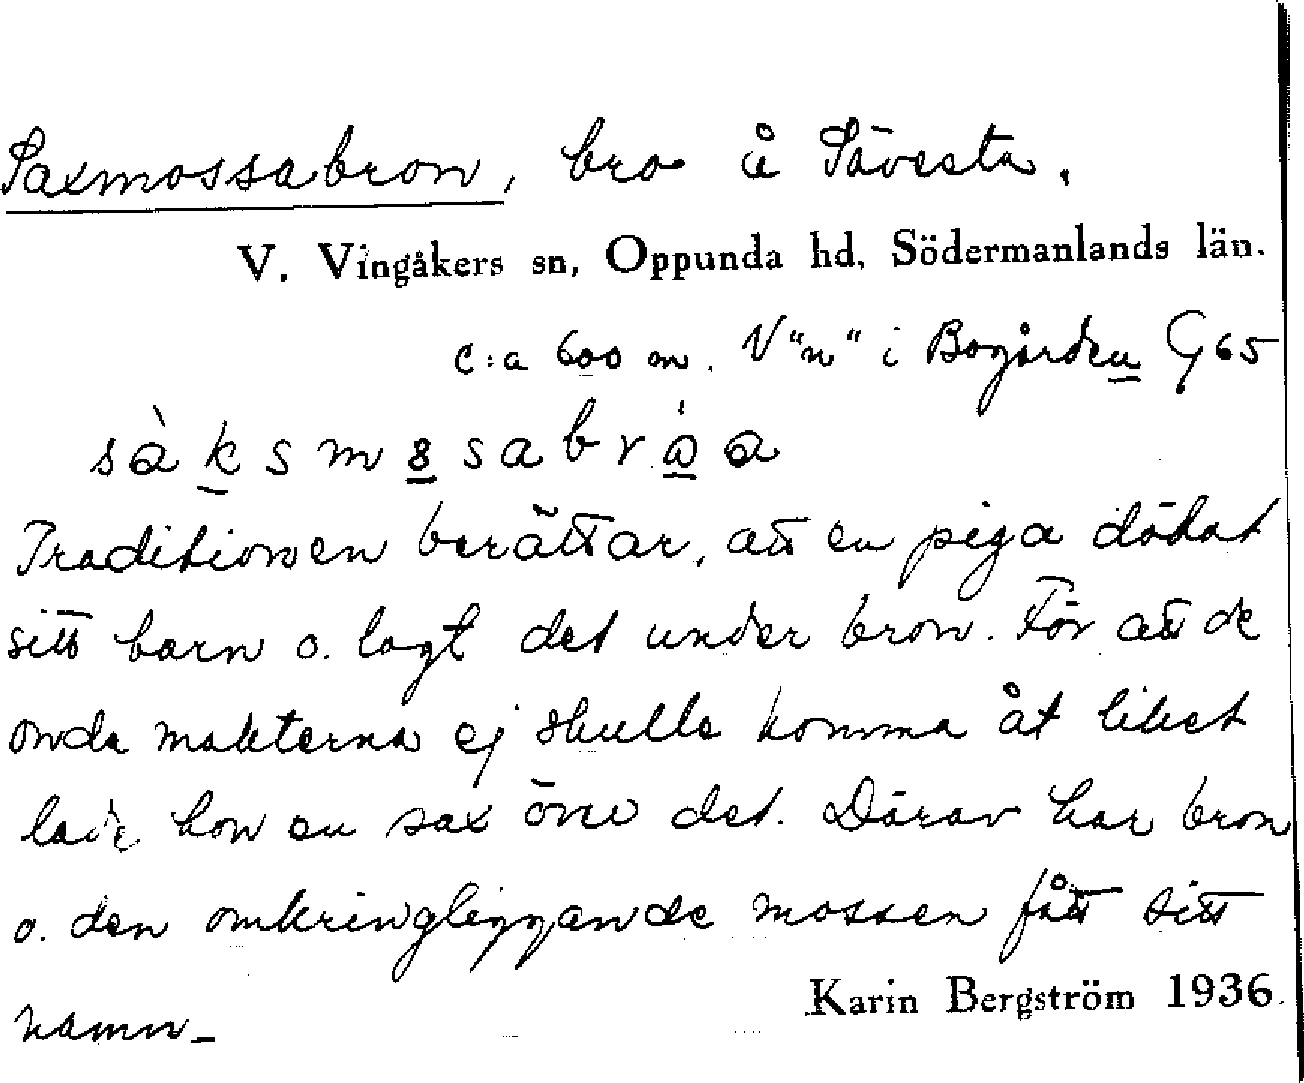 Saxmossabron, bro å Sävesta.
V. Vingåkers sn, Oppunda hd, Södermanlands län.
c:a 600 m. V "n" i Bogården G 65
sàksm8sabrá̊a
Traditionen berättar, att en piga dödat
sitt barn o. lagt det under bron. För att de
onda makterna ej skulle komma åt liket
lade hon en sax över det. Därav har bron
o. den omkringliggande mossen fått sitt
namn_
Karin Bergström 1936.